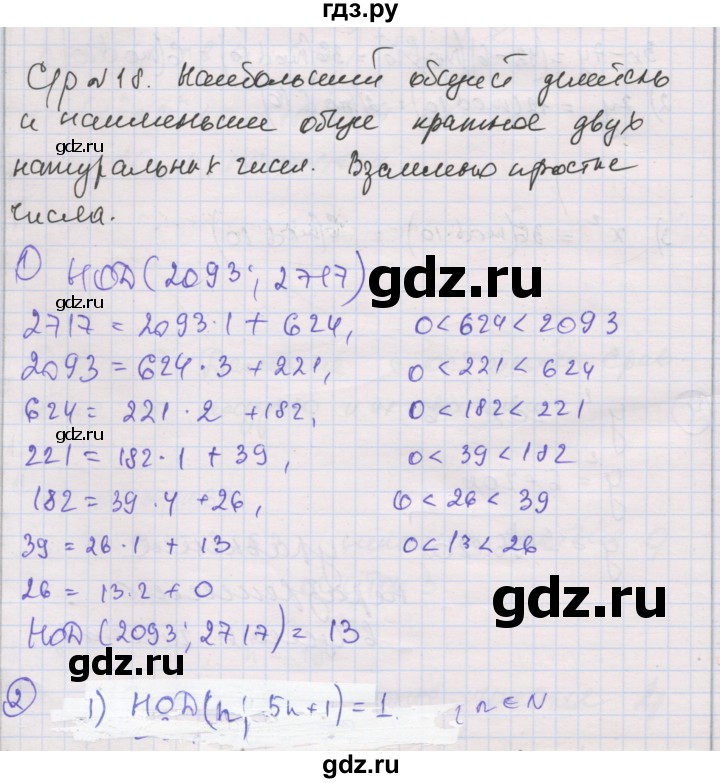 гдз.ру
С/р №18. Наибольший общий делитель
и наименьшее общее кратное двух
натуральных чисел. Взаимно простые
числа.
1) НОД(2093; 2717)
2717 = 2093·1 + 624, 0<624<2093
2093 = 624·3 + 221, 0<221<624
624 = 221·2 +182, 0<182<221
221 = 182·1 + 39, 0<39<182
182 = 39·4 +26, 0<26<39
39 = 26·1 + 13 0<13<26
26 = 13·2 + 0
НОД(2093; 2717) = 13
2 1) НОД(n; 5n+1) = 1. , n∈N
gdz.ru
gdz.ru
gdz.ru
gdz.ru
gdz.ru
gdz.ru
gdz.ru
gdz.ru